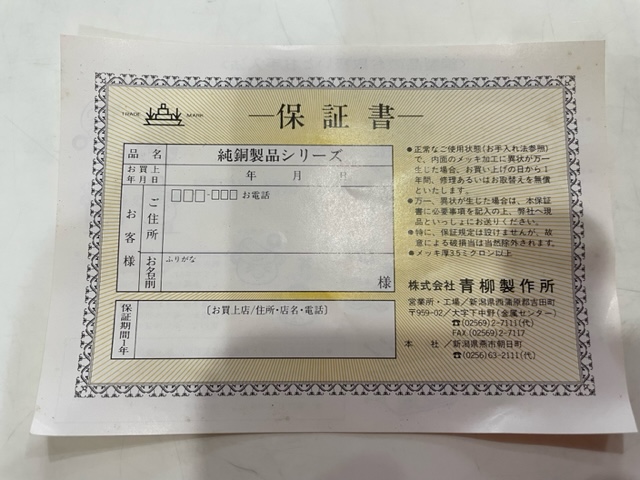 TRADE MARK
―保証書―
品名 純銅製品シリーズ
お買上年月日 年 月 日
お客様
ご住所 □□□-□□□ お電話
ふりがな
お名前 様
保証期間1年
〔お買上店/住所・店名・電話〕
●正常なご使用状態(お手入れ法参照)
で、内面のメッキ加工に異状が万一
生じた場合、お買い上げの日から1
年間、修理あるいはお取替えを無償
といたします。
●万一、異状が生じた場合は、本保証
書に必要事項を記入の上、弊社へ現
品といっしょにお送りください。
●特に、保証規定は設けませんが、故
意による破損当は当然除外されます。
●メッキ厚3.5ミクロン以上
株式会社 青柳製作所
営業所・工場/新潟県西蒲原郡吉田町
〒959-02/大字下中野(金属センター)
☎(02569)2-7111(代)
FAX(02569)2-7117
本社/新潟県燕市朝日町
☎(0256)63-2111(代)